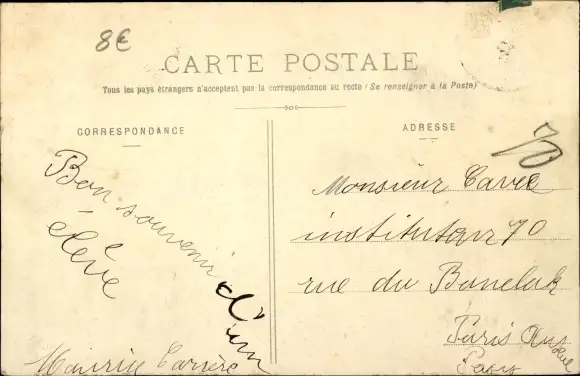 8€
CARTE POSTALE
Tous les pays étrangers n'acceptent pas la correspondance au recto (Se renseigner à la Poste)
CORRESPONDANCE
ADRESSE
70
Bon souvenir d'un
élève
Maurice Carrère
Monsieur Cavel
instituteur 70
rue du Banelak
Paris